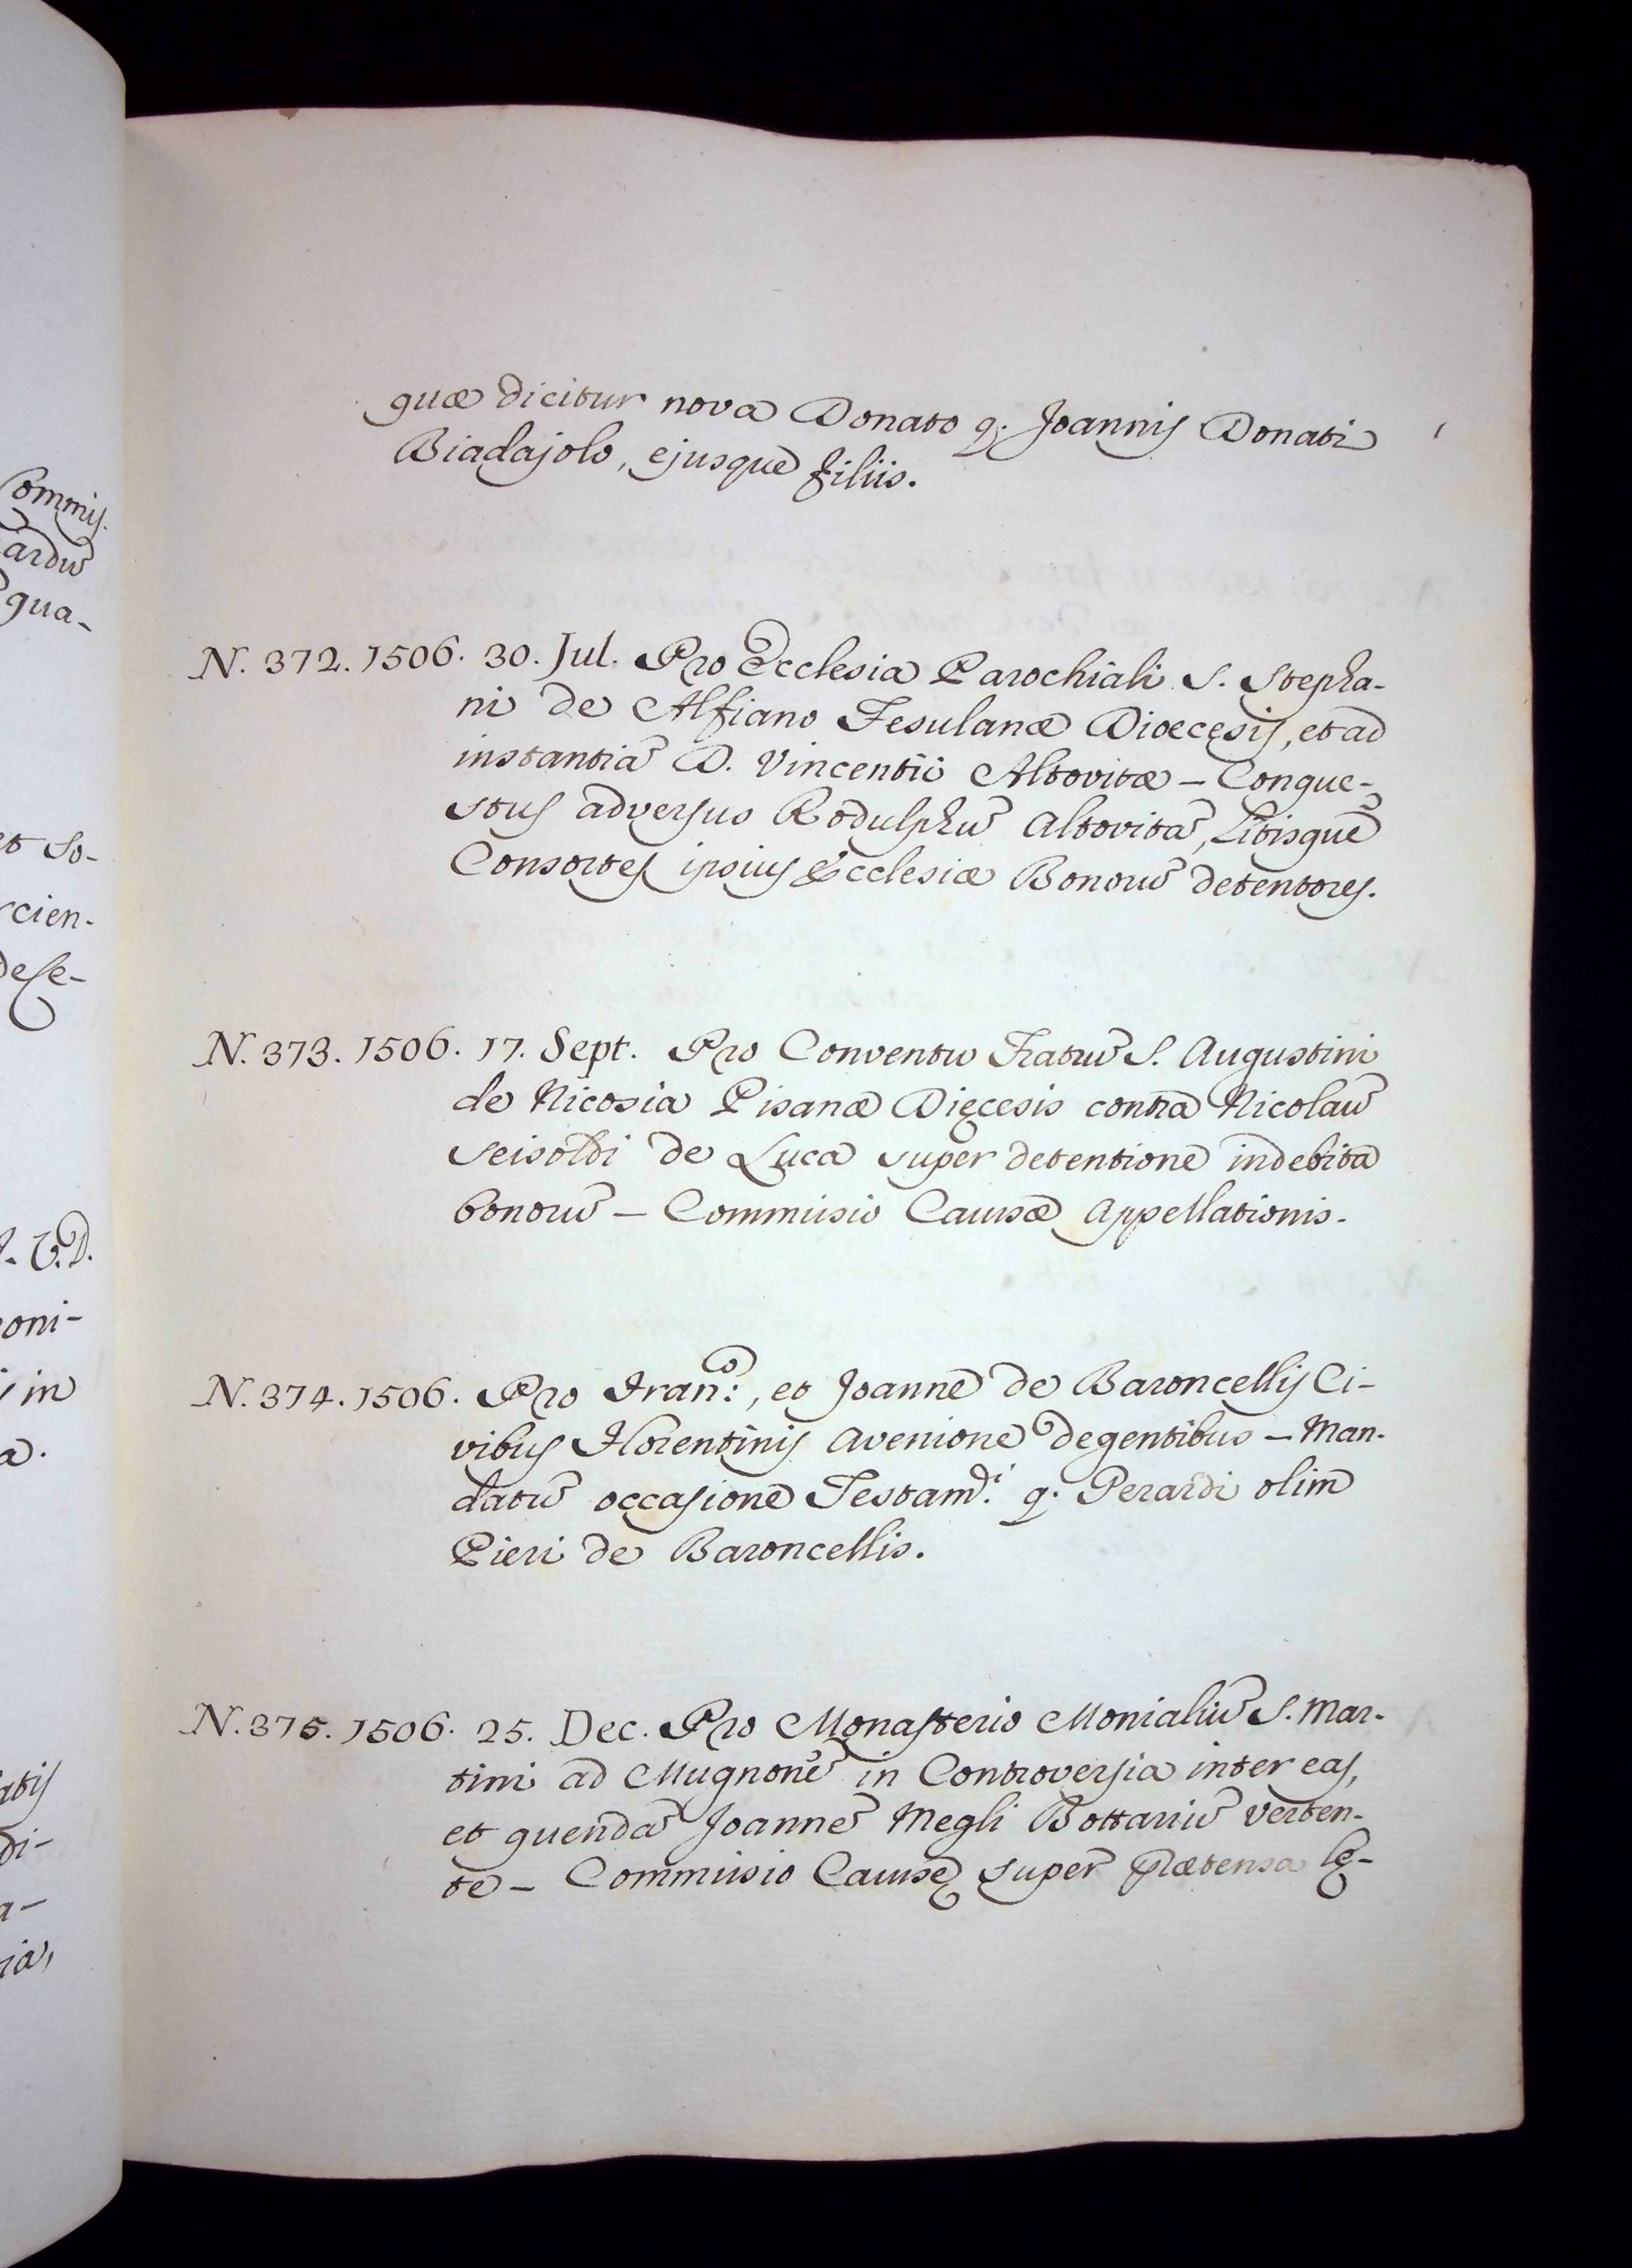 quæ dicitur nova Donato q. Joannis Donati
Biadajolo, ejusque filiis.
N. 372. 1506. 30. Jul. Pro Ecclesia Parochiali S. Stepha-
ni de Alfiano Fesulanæ Diœcesis, et ad
instantiã D. Vincentii Altovitæ – Conque-
stus adversus Rodulphũ Altovitã, Litisque
Consortes ipsius Ecclesiæ Bonorũ detentores.
N. 373. 1506. 17. Sept. Pro Conventu Fratrũ S. Augustini
de Nicosia Pisanæ Dięcesis contra Nicolaũ
Seisoldi de Luca super detentione indebita
bonorũ – Commissio Causæ Appellationis.
N. 374. 1506. Pro Fran:co, et Joanne de Baroncellis Ci-
vibus Florentinis Avenione degentibus – Man-
datũ occasione Testam:di q. Perardi olim
Pieri de Baroncellis.
N. 375. 1506. 25. Dec. Pro Monasterio Monialiũ S. Mar-
tini ad Mugnonẽ in Controversia inter eas,
et quendã Joannẽ Megli Bottariũ verten-
te – Commissio Causę super prætensa lę-
Commis.
ardũ
qua-
et So-
rcien-
dese-
V.D.
oni-
in
a.
atis
di-
a-
ria,